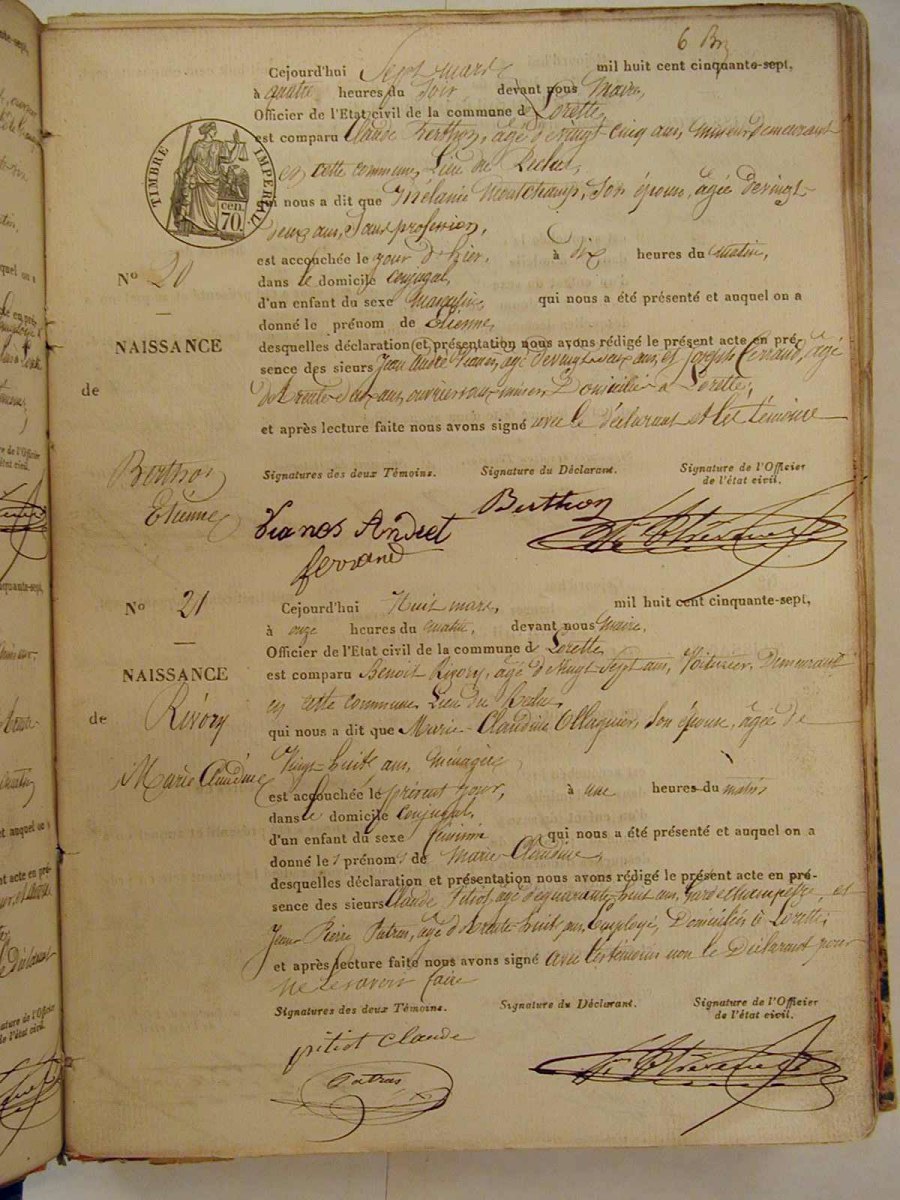 6 
Cejourd'hui Sept mars mil huit cent cinquante-sept,
à quatre heures du Soir devant nous Maire,
Officier de l'Etat civil de la commune d Lorette,
est comparu Claude Berthon, âgé de vingt cinq ans, mineur demeurant
en cette commune, Lieu du
qui nous a dit que Mélanie Montchamp, Son épouse, âgée de vingt
deux ans, Sans profession,
est accouchée le jour d'hier, à dix heures du matin,
dans le domicile conjugal,
d'un enfant du sexe masculin, qui nous a été présenté et auquel on a
donné le prénom de Etienne,
desquelles déclaration et présentation nous avons rédigé le présent acte en pré-
sence des sieurs Jean André Vianes, âgé de vingt ans, et Joseph Ferrand, âgé
de trente ans, ouvriers aux mines, Domiciliés à Lorette,
et après lecture faite nous avons signé avec le déclarant et les témoins
TIMBRE IMPERIAL
70 cen.
N° 20
NAISSANCE
de
Berthon
Etienne
Signatures des deux Témoins. Signature du Déclarant. Signature de l'Officier
de l'état civil.
Vianes Andret Berthon
ferrand
N° 21
NAISSANCE
de Rivory
Marie Claudine
Cejourd'hui Huit mars, mil huit cent cinquante-sept,
à onze heures du matin, devant nous Maire,
Officier de l'Etat civil de la commune d Lorette,
est comparu Benoît Rivory, âgé de vingt Sept ans, Voiturier, Demeurant
en cette commune, Lieu du
qui nous a dit que Marie Claudine Son épouse, âgée de
Vingt-huit ans, Ménagère,
est accouchée le présent jour, à une heures du matin
dans le domicile conjugal,
d'un enfant du sexe féminin qui nous a été présenté et auquel on a
donné le s prénom s de Marie Claudine,
desquelles déclaration et présentation nous avons rédigé le présent acte en pré-
sence des sieurs Claude Pitiot, âgé de quarante-huit ans, Garde champêtre, et
Jean Pierre Patras, âgé de trente huit ans, Employé, Domiciliés à Lorette,
et après lecture faite nous avons signé avec les témoins non le Déclarant pour
ne le savoir faire
Signatures des deux Témoins. Signature du Déclarant. Signature de l'Officier
de l'état civil.
pitiot Claude
Patras